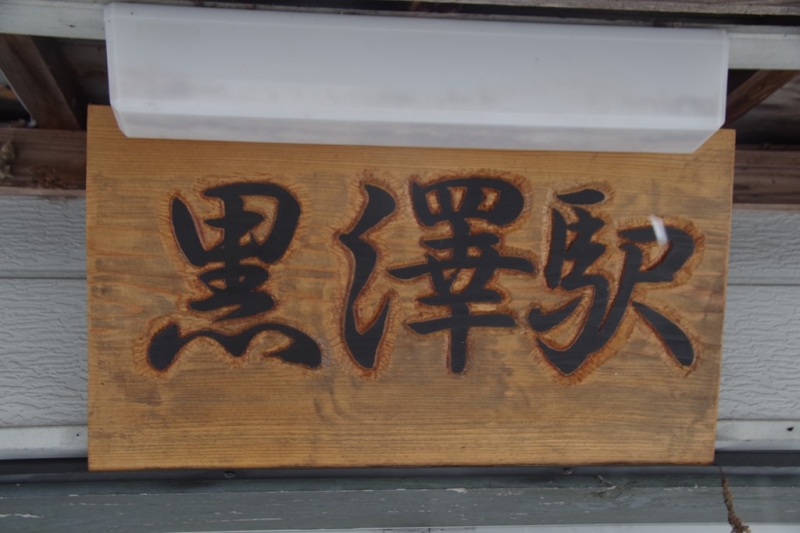 黒澤駅